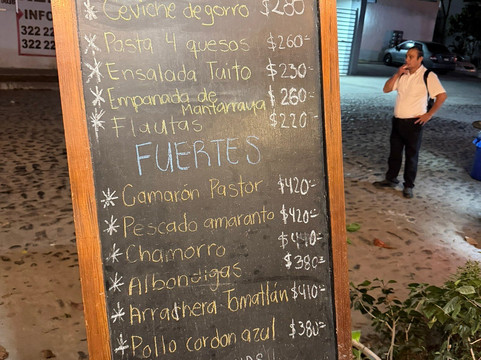 INFO
322 22
322 22
* Ceviche de gorro $280
* Pasta 4 quesos $260-
* Ensalada Taito $230-
* Empanada de Mantarraya $260-
* Flautas $220-
FUERTES
* Camarón Pastor $420=
* Pescado amaranto $420=
* Chamorro $440=
* Albondigas $380=
* Arrachera Tomatlán $410=
* Pollo cordon azul $380=